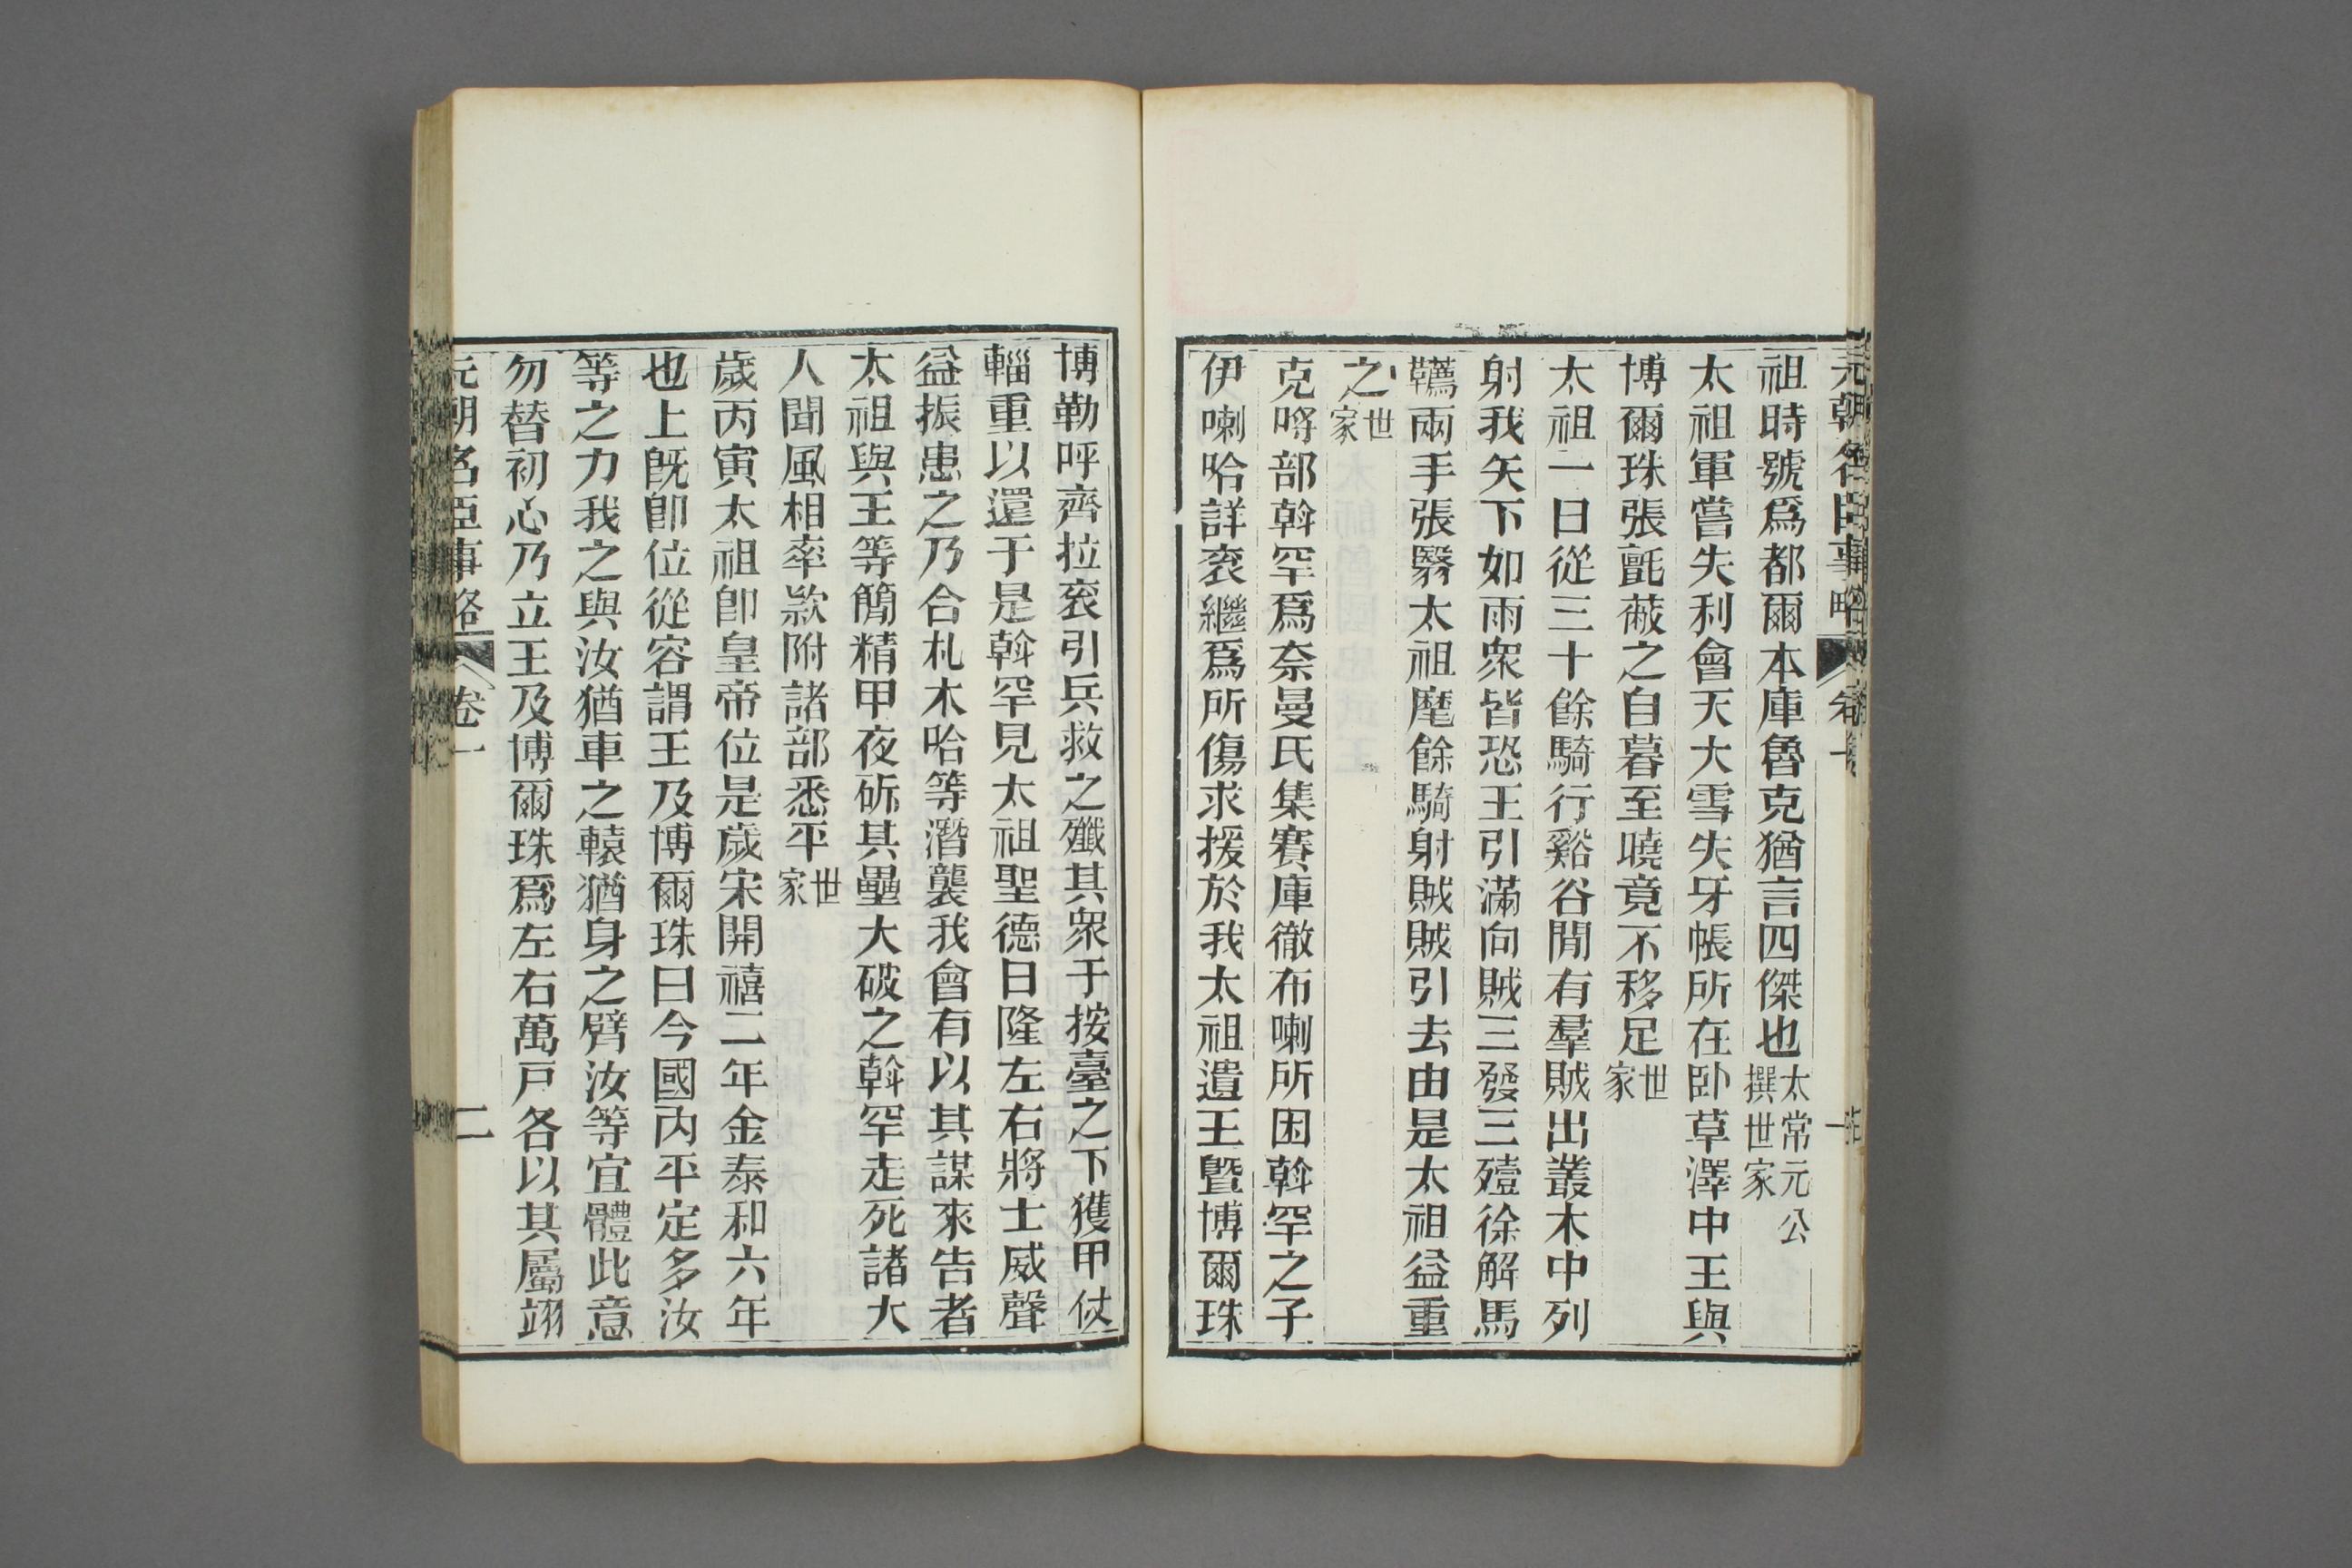 祖時號爲都爾本庫魯克猶言四傑也太常元公撰世家
太祖軍嘗失利會天大雪失牙帳所在卧草澤中王與
博爾珠張氈蔽之自暮至曉竟不移足世家
太祖一日從三十餘騎行谿谷閒有羣賊出叢木中列
射我矢下如雨衆皆恐王引滿向賊三發三殪徐解馬
韉兩手張翳太祖麾餘騎射賊賊引去由是太祖益重
之世家
克哷部斡罕爲奈曼氏集賽庫徹布喇所困斡罕之子
伊喇哈詳衮繼爲所傷求援於我太祖遣王曁博爾珠
博勒呼齊拉衮引兵救之殲其衆于按臺之下獲甲仗
輜重以還于是斡罕見太祖聖德日隆左右將士威聲
益振患之乃合札木哈等潛襲我會有以其謀來告者
太祖與王等簡精甲夜斫其壘大破之斡罕走死諸大
人聞風相率欵附諸部悉平世家
歲丙寅太祖卽皇帝位是歲宋開禧二年金泰和六年
也上旣卽位從容謂王及博爾珠曰今國内平定多汝
等之力我之與汝猶車之轅猶身之臂汝等宜體此意
勿替初心乃立王及博爾珠爲左右萬戸各以其屬翊
元朝名臣事略 卷一 二